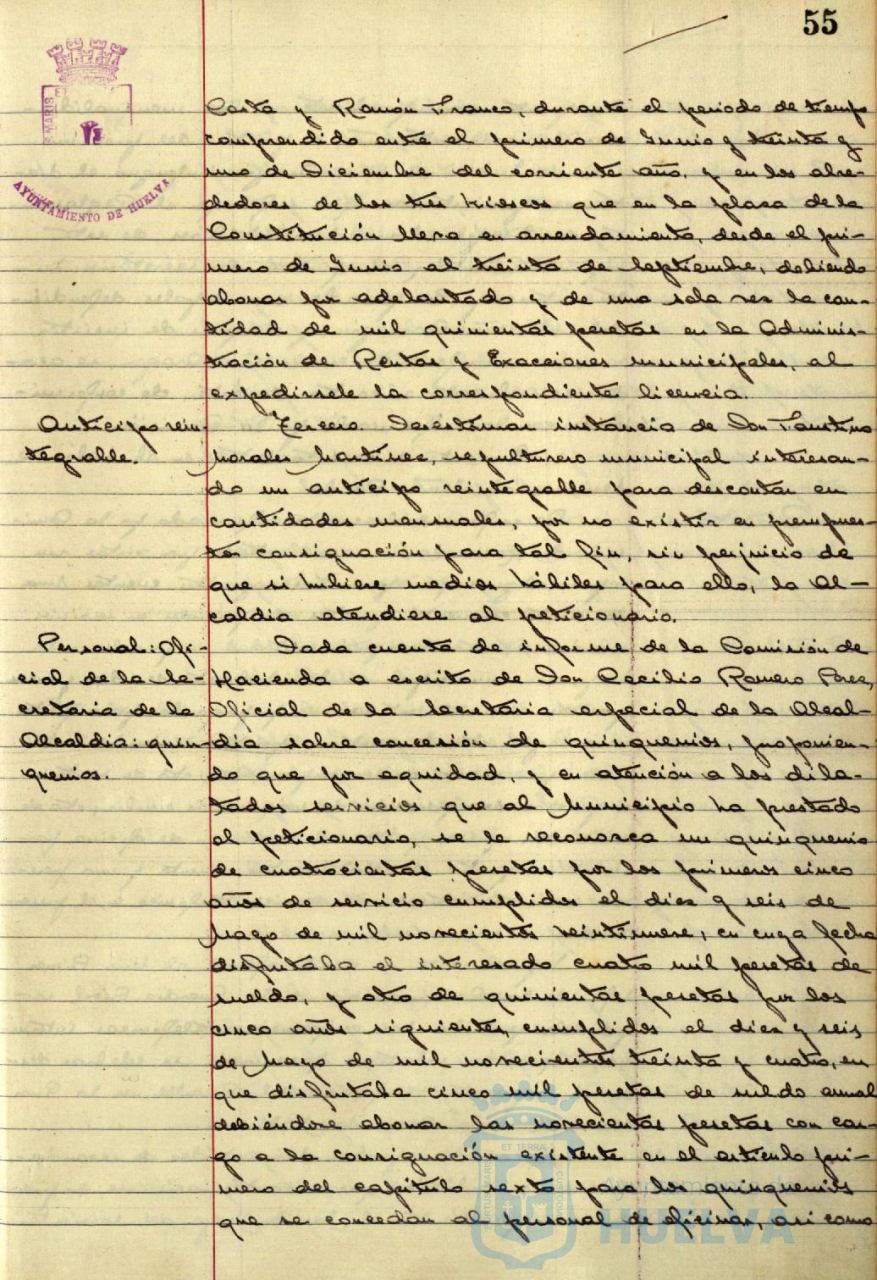 55
MARIS
AYUNTAMIENTO DE HUELVA
Costa y Ramón Franco, durante el periodo de tiempo
comprendido entre el primero de Junio y treinta y
uno de Diciembre del corriente año, y en los alre-
dedores de los tres kioscos que en la plaza de la
Constitución lleva en arrendamiento, desde el pri-
mero de Junio al treinta de Septiembre, debiendo
abonar por adelantado y de una sola vez la can-
tidad de mil quinientas pesetas en la Adminis-
tración de Rentas y Exacciones municipales, al
expedirsele la correspondiente licencia.
Anticipo rein-
tegrable.
Tercero. Desestimar instancia de Don Faustino
Morales Martinez, sepulturero municipal interesan-
do un anticipo reintegrable para descontar en
cantidades mensuales, por no existir en presupues-
to consignación para tal fin, sin perjuicio de
que si hubiere medios hábiles para ello, la Al-
caldia atendiese al peticionario.
Personal: Ofi-
cial de la Se-
cretaria de la
Alcaldia: quin-
quenios.
Dada cuenta de informe de la Comisión de
Hacienda a escrito de Don Cecilio Romero Perez,
Oficial de la Secretaria especial de la Alcal-
dia sobre concesión de quinquenios, proponien-
do que por equidad, y en atención a los dila-
tados servicios que al Municipio ha prestado
el peticionario, se le reconozca un quinquenio
de cuatrocientas pesetas por los primeros cinco
años de servicio cumplidos el diez y seis de
Mayo de mil novecientos veintinueve, en cuya fecha
disfrutaba el interesado cuatro mil pesetas de
sueldo, y otro de quinientas pesetas por los
cinco años siguientes, cumplidos el diez y seis
de Mayo de mil novecientos treinta y cuatro, en
que disfrutaba cinco mil pesetas de sueldo anual
debiéndose abonar las novecientas pesetas con car-
go a la consignación existente en el articulo pri-
mero del capitulo sexto para los quinquenios
que se concedan al personal de oficinas, asi como
HUELVA